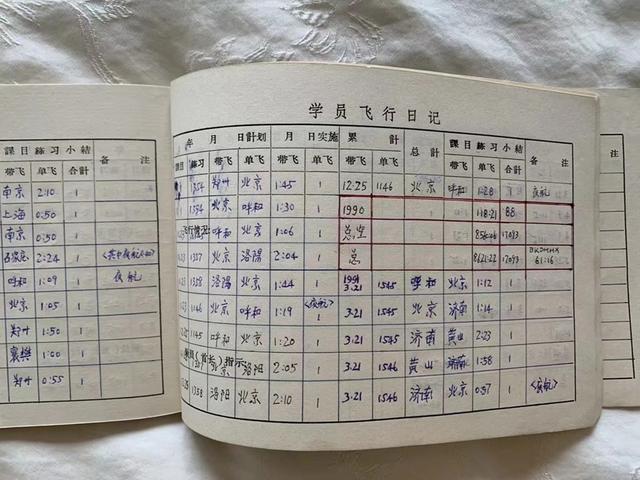 課目練习小結 备 注
带飞 单飞 合計
南京 2:10 1
上海 0:50 1
南京 0:50 1
2:24 1
1:09 1 夜航
北京 1:05 1
郑州 1:50 1
襄樊 1:00 1
郑州 0:55 1
学员飞行日记
年 月 日計划 月 日实施 累 計 总 計 課目練习小結 备 注
練习 带飞 单飞 带飞 单飞 带飞 单飞 带飞 单飞 合計
郑州 北京 1:45 1 12:25 1146 北京 呼和 1:28 1 夜航
北京 呼和 1:30 1 1990 118:21 88
飞行情况 呼和 北京 1:06 1 总空
北京 洛陽 2:04 1 总 61:16
洛陽 北京 1:44 1 1991 3.21 1545 呼和 北京 1:12 1
北京 呼和 1:19 <夜航> 1 3.21 1545 北京 济南 1:14 1
1145 呼和 北京 1:20 1 3.21 1545 济南 黄山 2:23 1
(首长)指示 洛阳 2:05 1 3.21 1546 黄山 济南 1:58 1
1358 洛阳 北京 2:10 1 3.21 1546 济南 北京 0:57 1 <夜航>